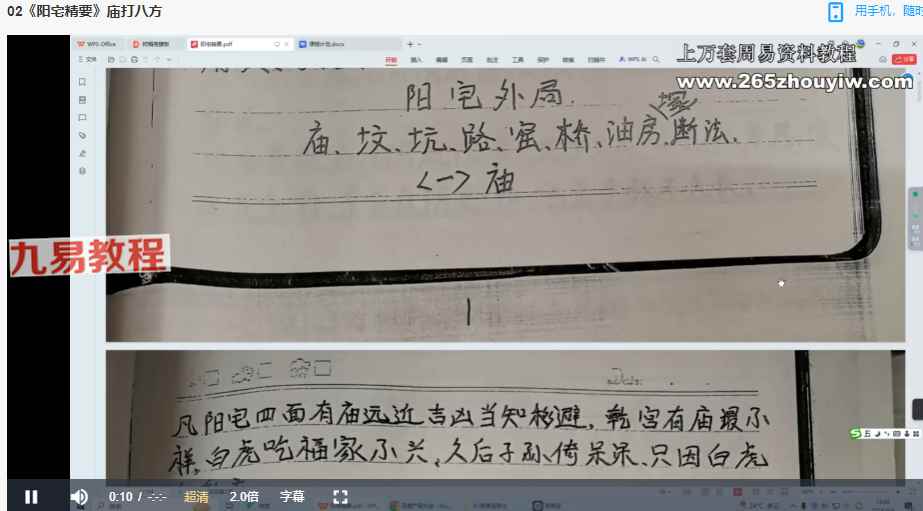 02《阳宅精要》庙打八方
用手机，随时
WPS Office
阳宅精要.pdf
课程计划.docx
上万套周易资料教程
www.265zhouyiw.com
文件
开始
插入
编辑
页面
批注
工具
保护
转换
WPS AI
分享
阳宅外局.
塚
庙、坟、坑、路、窑、桥、油房、断法、
<一>庙
九易教程
1
凡阳宅四面有庙远近吉凶当知移避,乾宫有庙最不
祥,白虎吃福家不兴,久后子孙倚呆呆,只因白虎
五
0:10 / -:-
超清
2.0倍
字幕
24°C